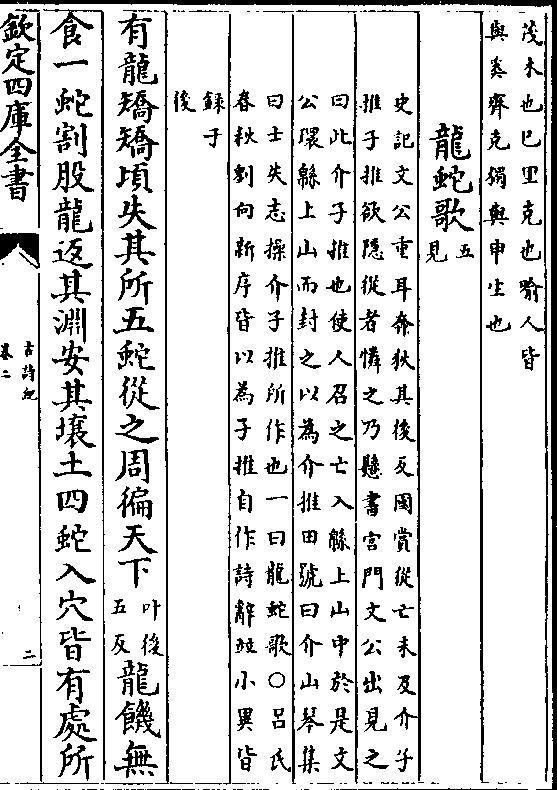 茂木也巳里克也喻人皆
與奚齊克獨與申生也
龍蛇歌五見
史記文公重耳奔狄其後反國賞從亡未及介子
推子推欲隱從者憐之乃懸書宮門文公出見之
曰此介子推也使人召之亡入緜上山中於是文
公環緜上山而封之以為介推田號曰介山琴集
曰士失志操介子推所作也一曰龍蛇歌○呂氏
春秋劉向新序皆以為子推自作詩辭竝小異皆
録于
後
有龍矯矯頃失其所五蛇從之周徧天下叶後五反龍饑無
食一蛇割股龍返其淵安其壤土四蛇入穴皆有處所
欽定四庫全書
古詩紀
卷二
二